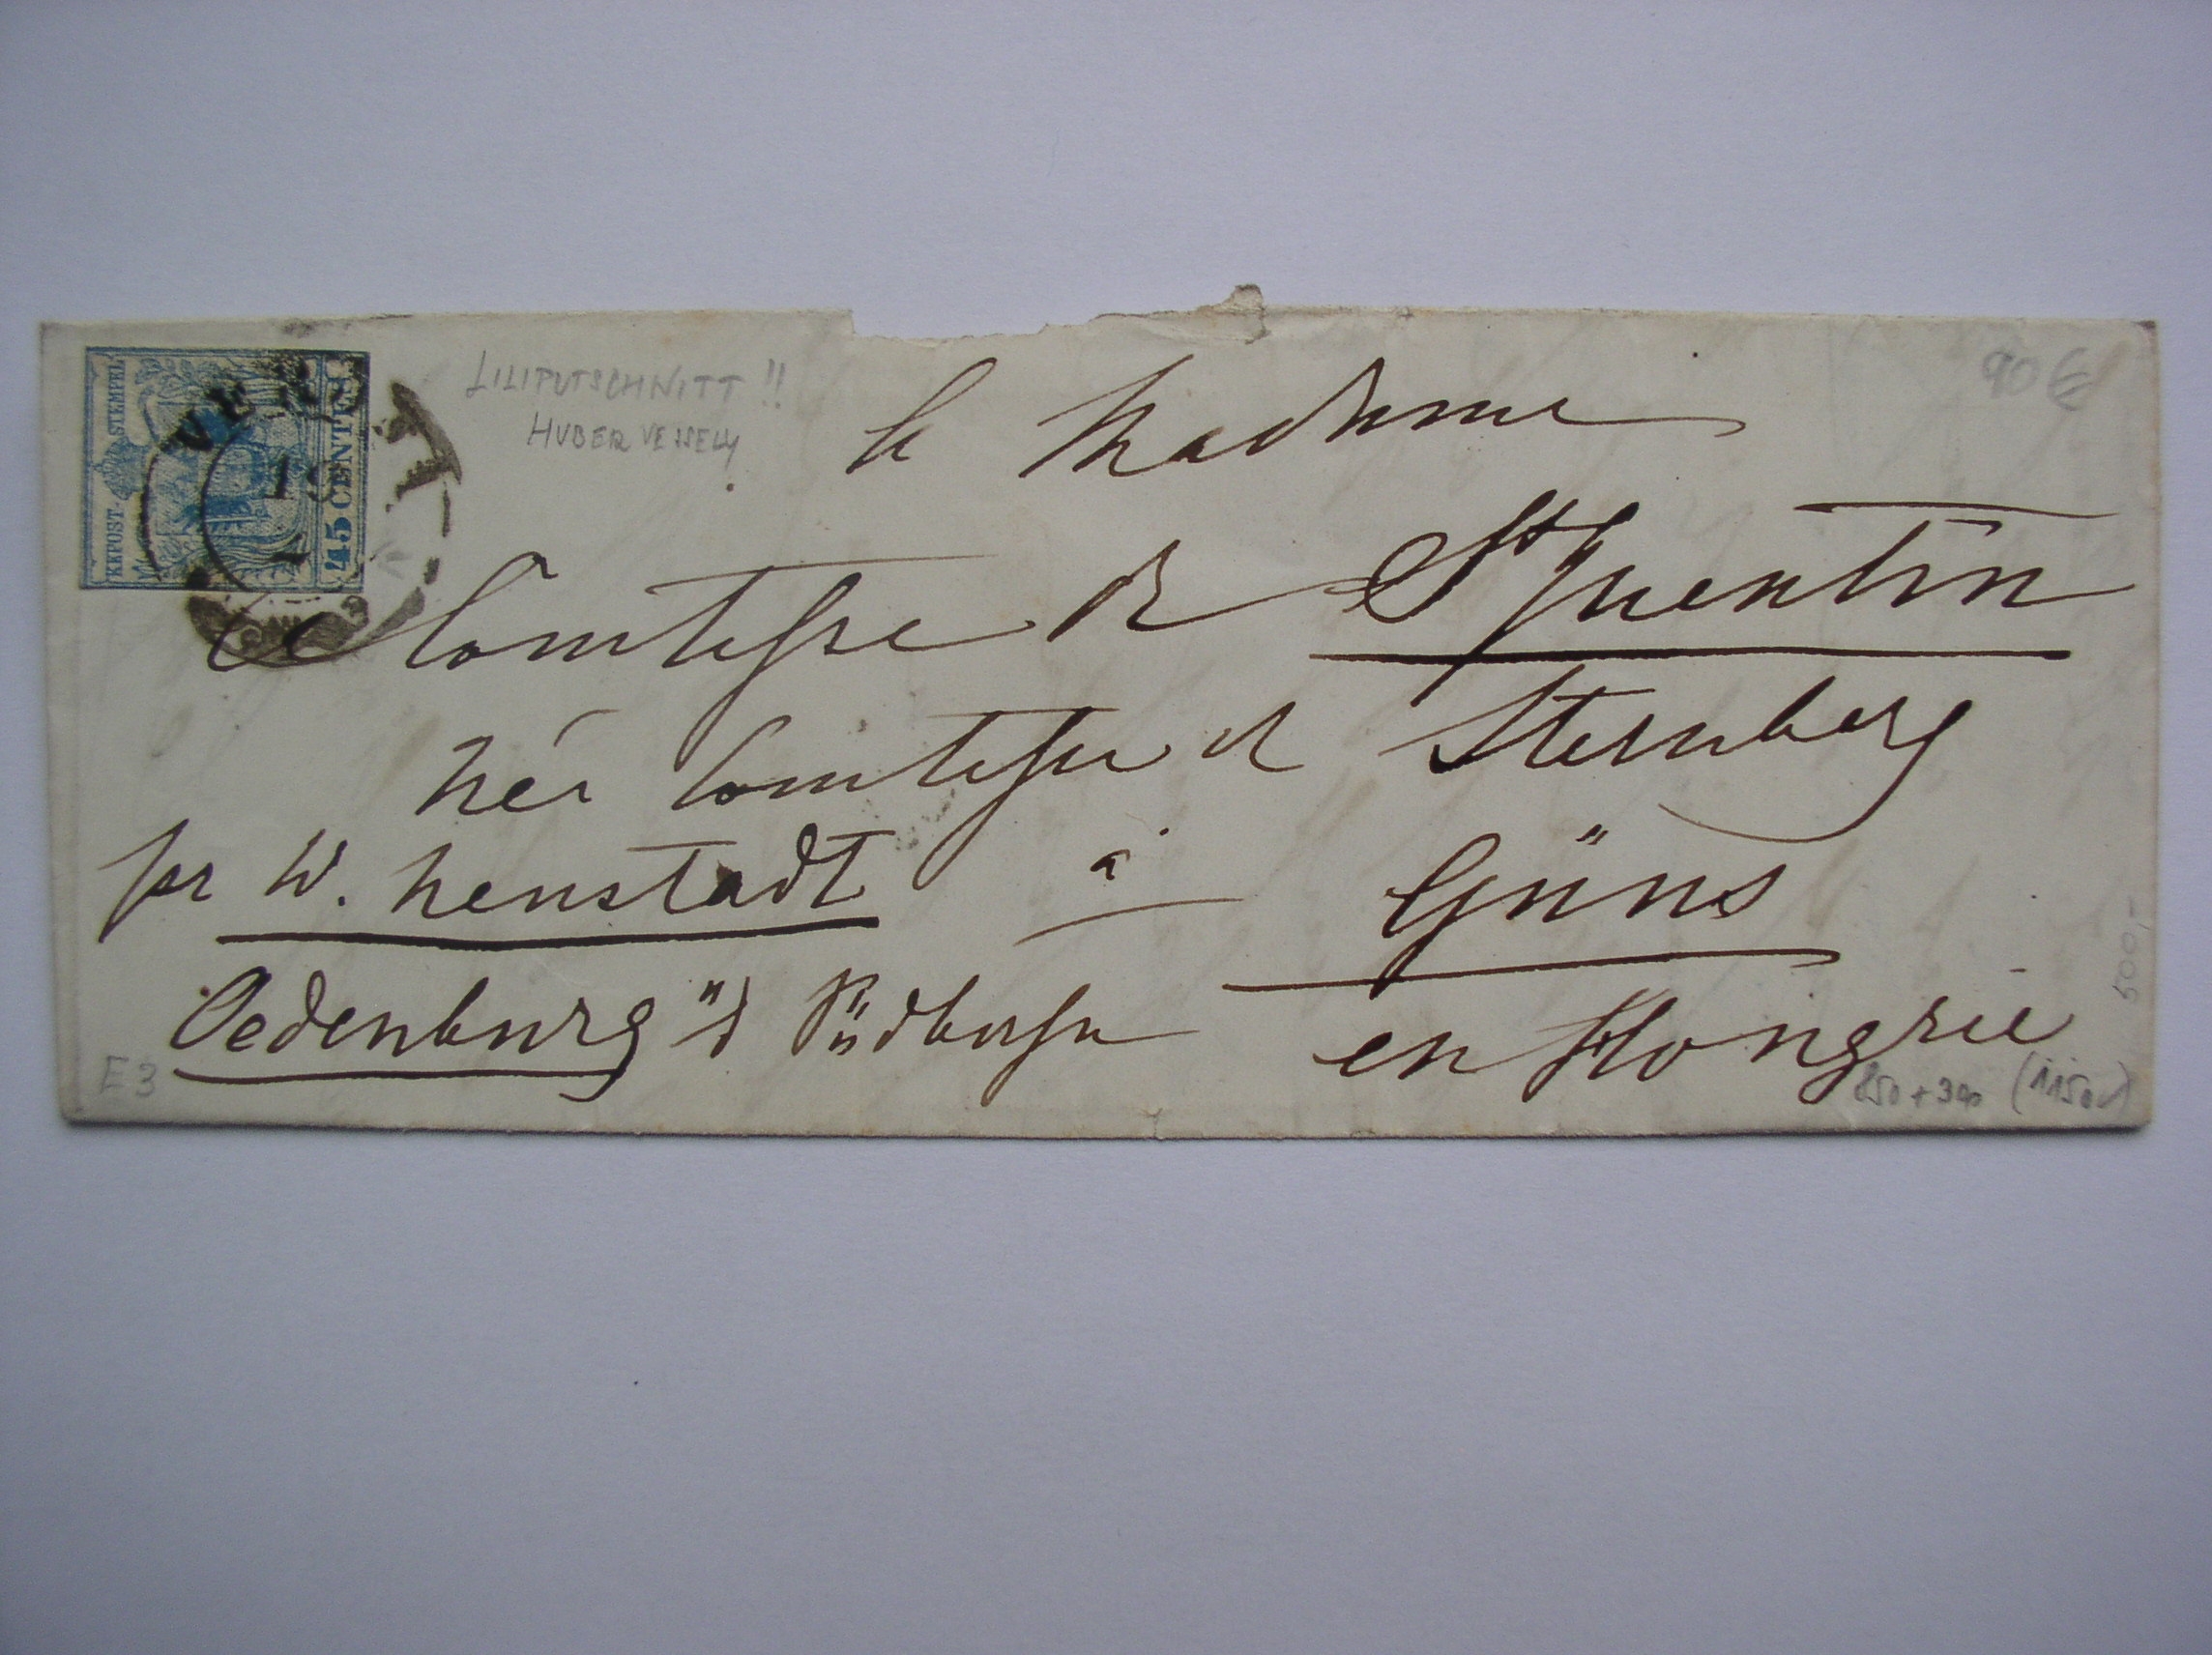 KKPOST-STEMPEL
45 CENTES
VERONA
19
LILIPUTSCHNITT !!
HUBER VESSELY
90 €
A Madame
Comtesse de St Quentin
née Comtesse de Sternberg
pr W. Neustadt à Güns
Oedenburg
en Hongrie
E3
850 + 300 (1150,-)
500,-